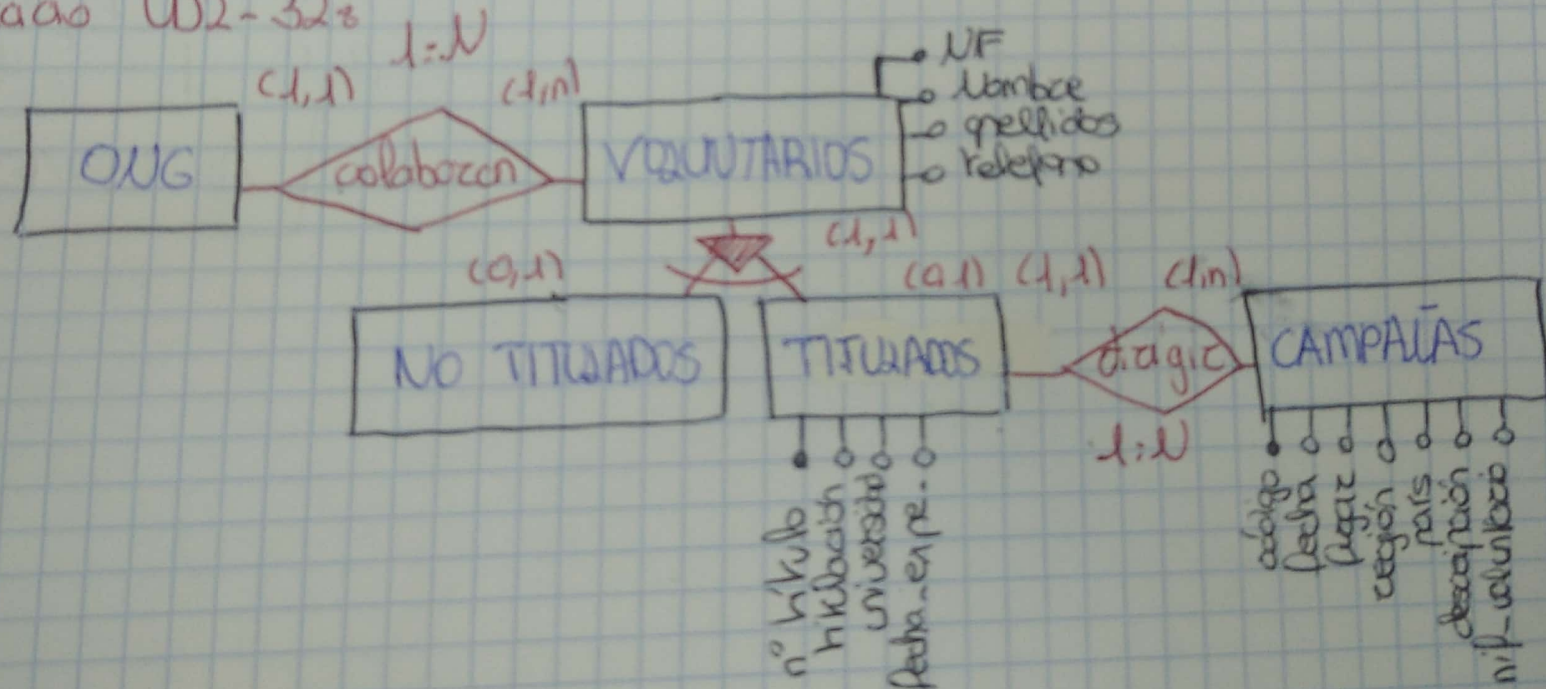 1:N
(1,1)
(1,n)
ONG
colaboran
VOLUNTARIOS
NIF
Nombre
apellidos
telefono
(1,1)
(0,1)
(0,1)
(1,1)
(1,n)
NO TITULADOS
TITULADOS
dirigir
CAMPAÑAS
1:N
nº titulo
titulación
universidad
fecha_enpe.
código
fecha
lugar
región
país
descripción
nif_voluntario